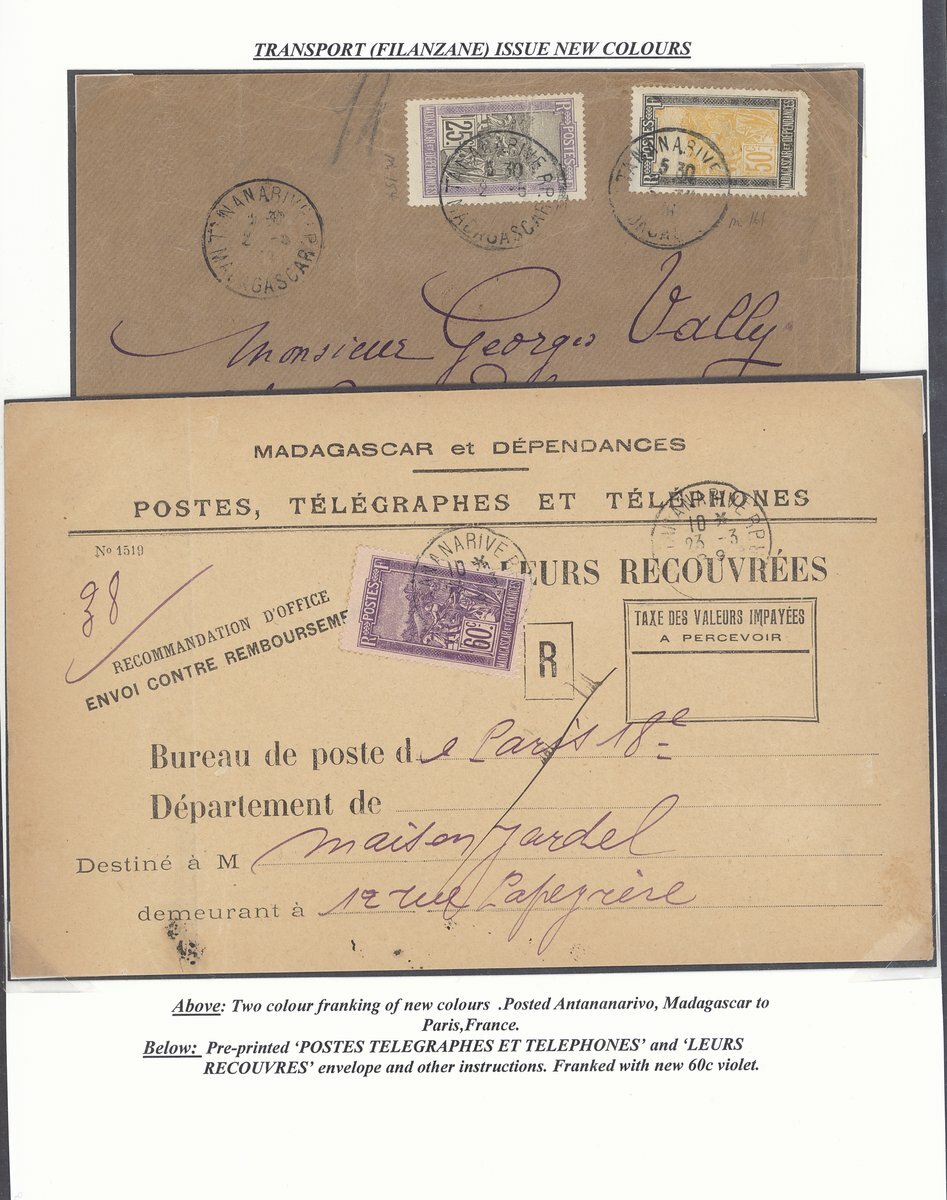 TRANSPORT (FILANZANE) ISSUE NEW COLOURS
25c
POSTES
MADAGASCAR ET DÉPENDANCES
POSTES
50c
MADAGASCAR ET DÉPENDANCES
TANANARIVE R.P.
5 30
MADAGASCAR
TANANARIVE
5 30
TANANARIVE R.P.
MADAGASCAR
Monsieur Georges Vally
MADAGASCAR et DÉPENDANCES
POSTES, TÉLÉGRAPHES ET TÉLÉPHONES
TANANARIVE R.P.
10 *
23 -3
No 1519
38
LEURS RECOUVRÉES
RECOMMANDATION D'OFFICE
ENVOI CONTRE REMBOURSEME
POSTES
60c
MADAGASCAR ET DÉPENDANCES
R
TAXE DES VALEURS IMPAYÉES
A PERCEVOIR
Bureau de poste d e Paris 18e
Département de
Destiné à M Maison Jardel
demeurant à 12 rue Lapeyrère
Above: Two colour franking of new colours .Posted Antananarivo, Madagascar to
Paris,France.
Below: Pre-printed ‘POSTES TELEGRAPHES ET TELEPHONES’ and ‘LEURS
RECOUVRES’ envelope and other instructions. Franked with new 60c violet.